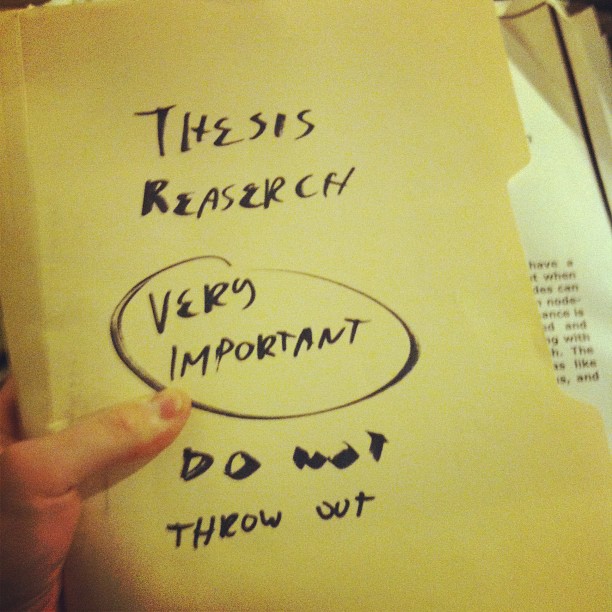 THESIS
REASERCH
VERY
IMPORTANT
DO NOT
THROW OUT
have a
t when
des can
node-
ance is
d and
ng with
h. The
as like
is, and